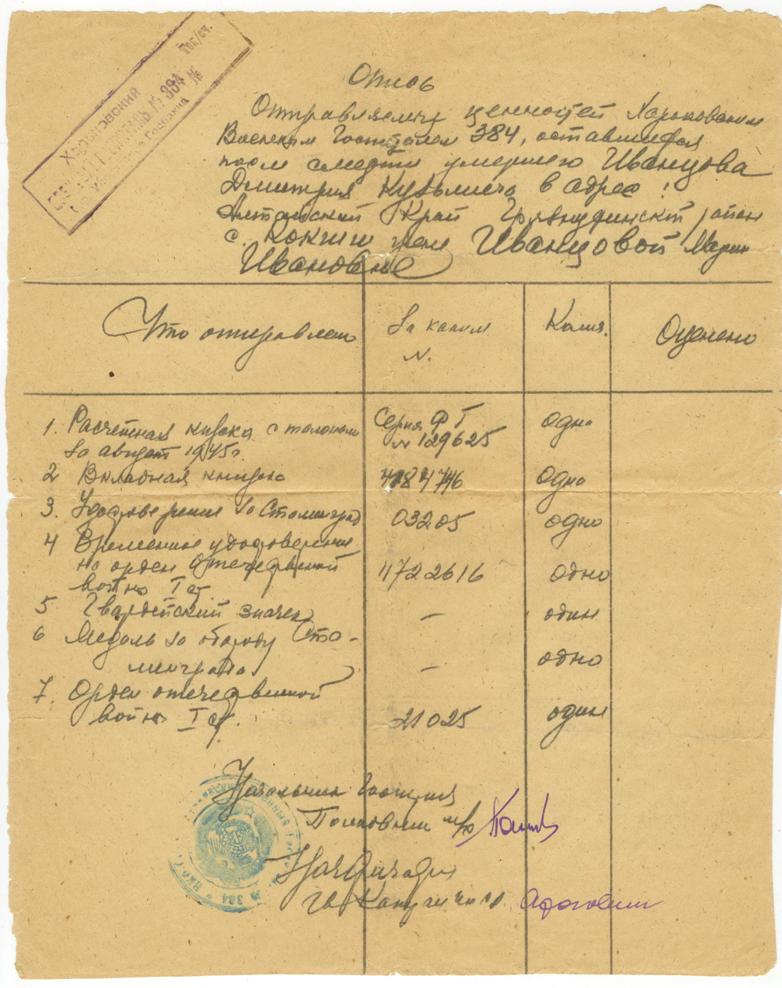 Харьковский
госпиталь № 384
Опись
Отправляемых ценностей Харьковским
Военным Госпиталем 384, оставшихся
после смерти умершего Иванцова
Дмитрия Кузьмича в адрес:
Алтайский Край район
с. Кокши жене Иванцовой Марии
Ивановне
Что отправлено За каким N. Колич. Оценено
1. Расчетная книжка с талонами Серия ФТ одна
за август 1945г. № 129625
2 Вкладная книжка 4784746 одна
3. Удостоверение за Сталинград 03205 одно
4 Временное удостоверение
на орден отечественной 1722616 одно
войны I ст.
5 Гвардейский значек — один
6 Медаль за оборону Ста-
линграда — одно
7. Орден отечественной
войны I ст. 21025 один
Начальник Госпиталя
Полковник м/с
384
гв Капитан